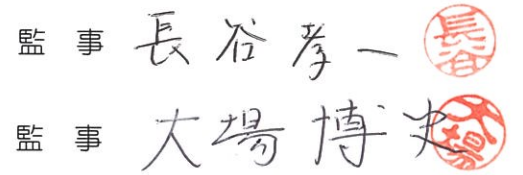 監事 長谷孝一 長谷
監事 大場博史 大場